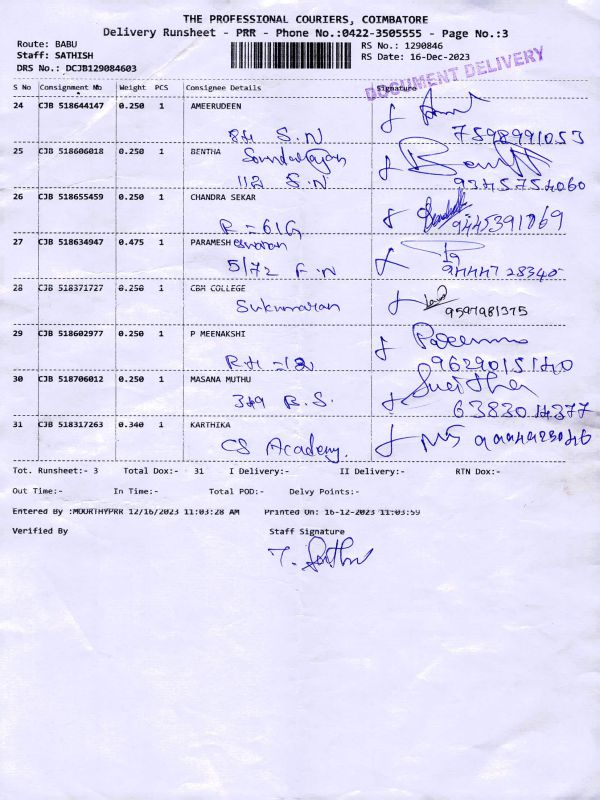 THE PROFESSIONAL COURIERS, COIMBATORE
Delivery Runsheet - PRR - Phone No.:0422-3505555 - Page No.:3
Route: BABU RS No.: 1290846
Staff: SATHISH RS Date: 16-Dec-2023
DRS No.: DCJB129084603
DOCUMENT DELIVERY
S No Consignment No Weight PCS Consignee Details Signature
24 CJB 518644147 0.250 1 AMEERUDEEN
S.N 7598991053
25 CJB 518606018 0.250 1 BENTHA
112 S.N 9345754060
26 CJB 518655459 0.250 1 CHANDRA SEKAR
R = 616 9445391069
27 CJB 518634947 0.475 1 PARAMESH eswaran
5/72 F.N 94447 28340
28 CJB 518371727 0.250 1 CBM COLLEGE
Sukumaran 9597981375
29 CJB 518602977 0.250 1 P MEENAKSHI
9629015140
30 CJB 518706012 0.250 1 MASANA MUTHU
349 B.S. 6383014377
31 CJB 518317263 0.340 1 KARTHIKA
CS Academy.
Tot. Runsheet:- 3 Total Dox:- 31 I Delivery:- II Delivery:- RTN Dox:-
Out Time:- In Time:- Total POD:- Delvy Points:-
Entered By :MOORTHYPRR 12/16/2023 11:03:28 AM Printed On: 16-12-2023 11:03:59
Verified By Staff Signature